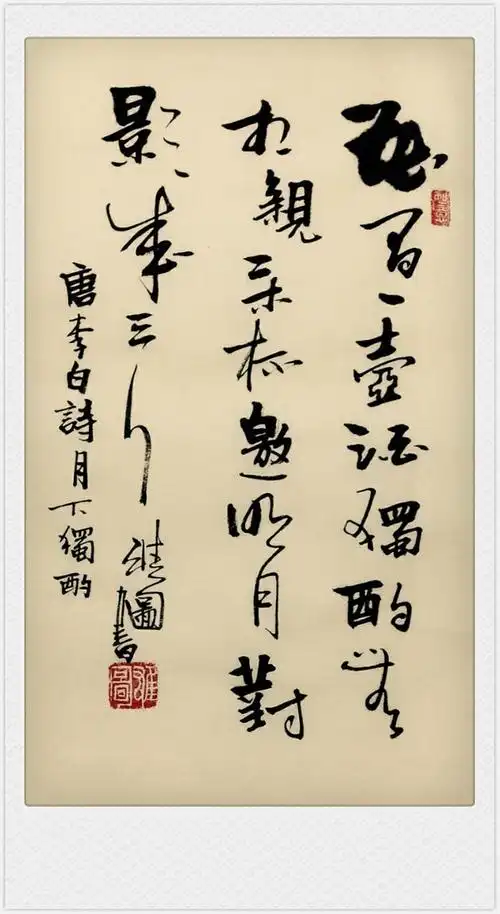 花间一壺酒獨酌無
相親举杯邀明月對
影成三人 圖書
唐李白詩月下獨酌